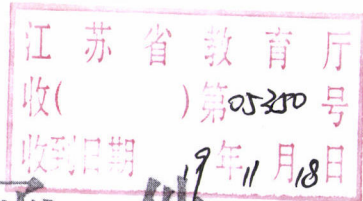 江苏省教育厅
收( )第05350号
收到日期 19年11月18日